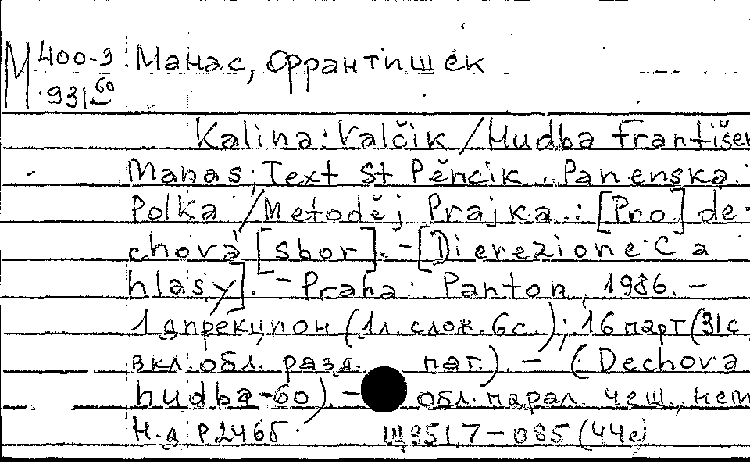 М 400-9 Манас, Франтишек
931 60
Kalina: Valčik / Hudba František
Manas: Text St Pěnčik. Panenska.
Polka / Metoděj Prajka.: [Pro] de-
chova [sbor]. - [Dierezione C a
hlasy]. - Praha: Panton, 1986. -
1 дирекцион (1л. слож. 6с.); 16 парт (31с,
вкл. обл. разд. паг.). - (Dechova
hudba-60). - обл. парал. чеш., нем
Н.д. Р2465 Щ951.7-085 (44е)